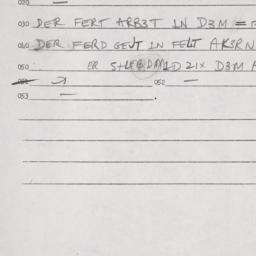 020 —
030 DER FERT ARB3T IN D3M =
040 DER FERD GEUT IN FELT AK3RN
050 ER D 21X D3M
051 052 —
053 — .